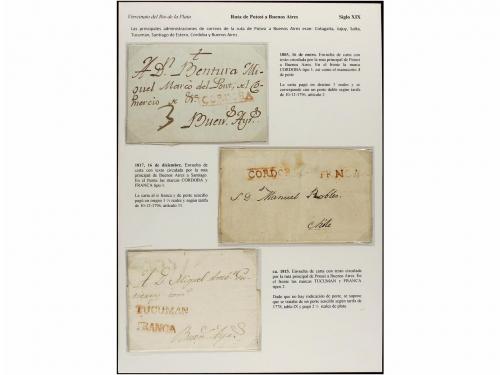 Virreinato del Río de la Plata
Ruta de Potosí a Buenos Aires
Siglo XIX
Las principales administraciones de correos de la ruta de Potosí a Buenos Aires eran: Cotagaita, Jujuy, Salta,
Tucuman, Santiago de Estero, Cordoba y Buenos Aires
A Dn Bentura Mi
guel Marco del Pont, del Co
mercio de
CORDOBA
3
Buens Ays
1805, 16 de enero. Envuelta de carta con
texto circulada por la ruta principal de Potosí
a Buenos Aires. En el frente la marca
CORDOBA tipo 1, así como el manuscrito 3
de porte
La carta pagó en destino 3 reales y se
corresponde con un porte doble según tarifa
de 10-12-1796, artículo 2
1817, 16 de diciembre. Envuelta de
carta con texto circulada por la ruta
principal de Buenos Aires a Santiago.
En el frente las marcas CORDOBA y
FRANCA tipo 1
La carta al ir franca y de porte sencillo
pagó en origen 3 ½ reales según tarifa
de 10-12-1796, artículo 11
CORDOBA
FRANCA
S. D. Manuel Robles
Chile
A D. Miguel
TUCUMAN
FRANCA
Buens Ays
ca. 1815. Envuelta de carta con texto circulada
por la ruta principal de Potosí a Buenos Aires. En
el frente las marcas TUCUMAN y FRANCA
tipos 2
Dado que no hay indicación de porte, se supone
que se trataba de un porte sencillo según tarifa de
1778, tabla IX y pagó 2 ½ reales de plata